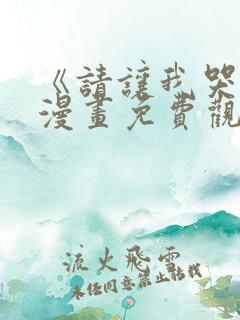 《請讓我哭
漫畫免費觀
流火飛雲
未經同意禁止轉載